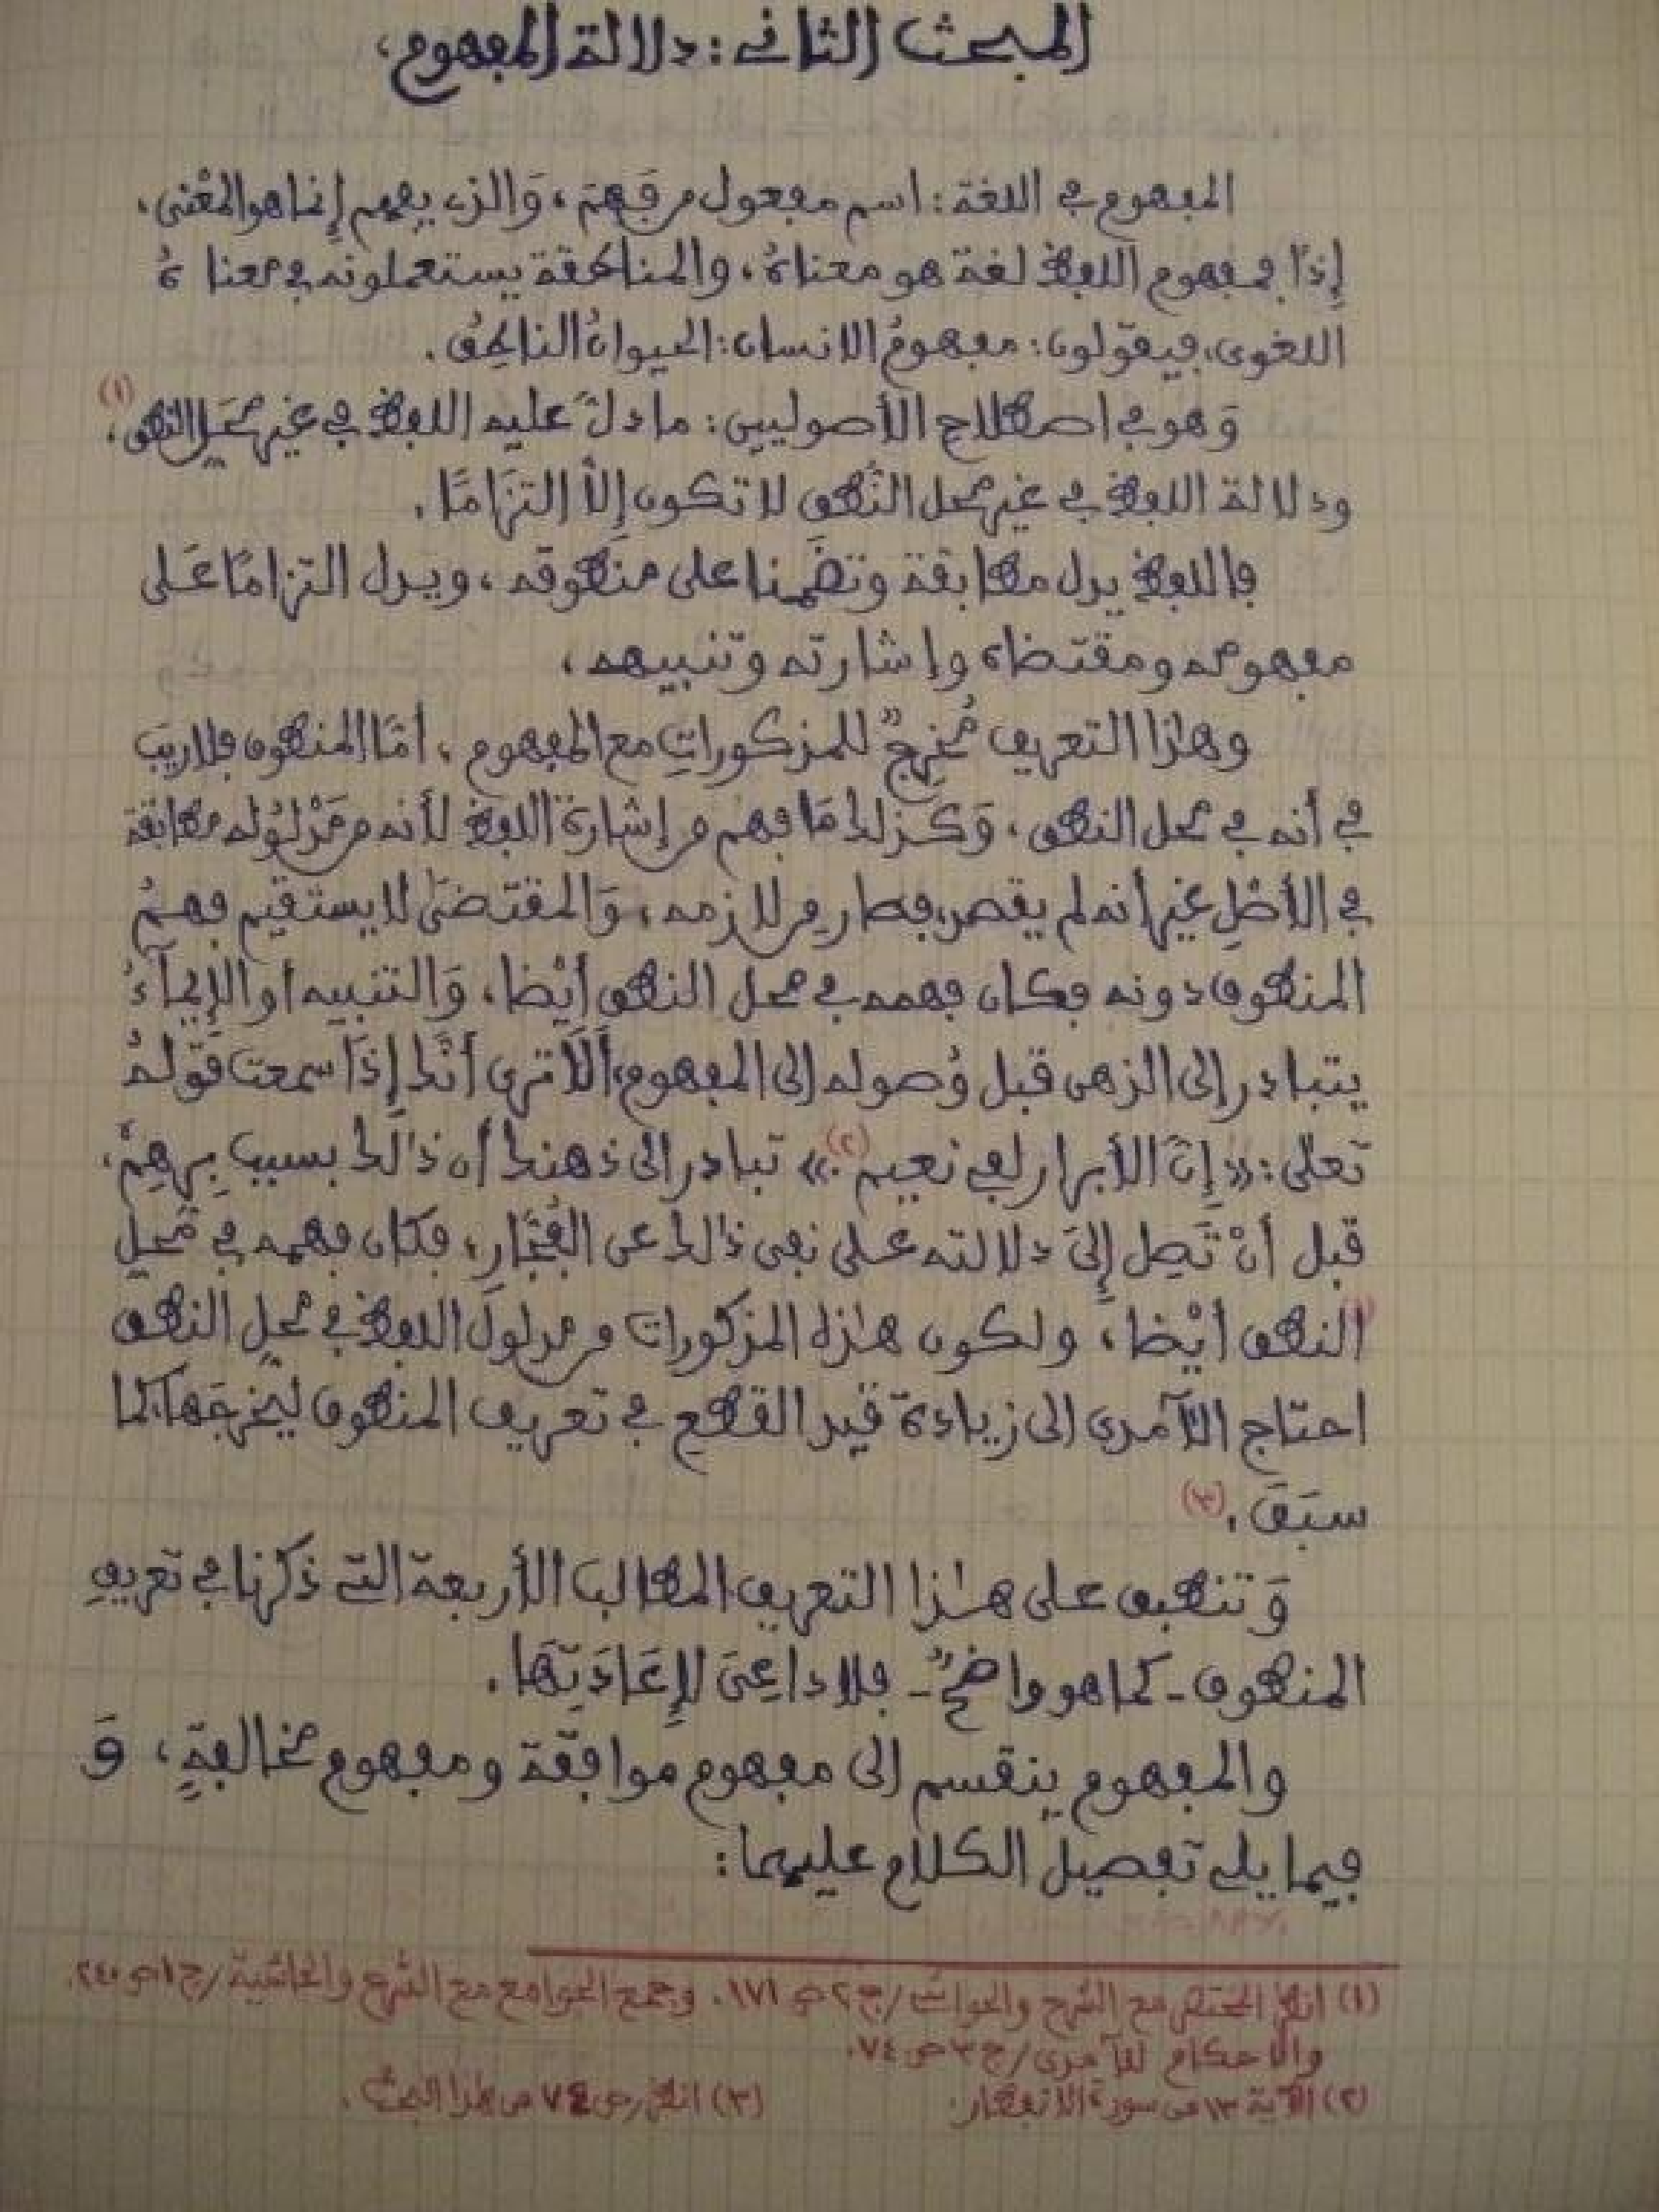 المبحث الثاني: دلالة المفهوم.
المفهوم في اللغة: اسم مفعول من فَهِمَ، وَالذي يفهم إنما هو المعْنى،
إِذًا فمفهوم اللفظ لغة هو معناهُ، والمناطقة يستعملونه في معناهُ
اللغوي، فيقولون: مفهومُ الانسان: الحيوانُ الناطِقُ.
وَهو في اصطلاح الأصوليين: ما دلّ عليه اللفظ في غير مَحَلِّ النطق، (١)
ودلالة اللفظ في غير محل النُّطق لا تكون إلاَّ التزَامًا.
فاللفظ يدل مطابقة وتضَمنا على منطوقه، ويدل التزامًا عَلى
مفهومه ومقتضاه وإشارته وتنبيهه.
وهٰذا التعريف مُخرِجٌ للمذكوراتِ مع المفهوم، أمَّا المنطوق فلا ريبَ
في أنه في محل النطق، وَكذلك مَا فهم من إشارة اللفظ لأنه من مَدْلُوله مطابقة
في الأصْلِ غير أنه لم يقصد، فصار من لازمه، وَالمقتضَى لا يستقيم فهمُ
المنطوق دونه فكان فهمه في محل النطق أيْضا، وَالتنبيه أو الإيماءُ
يتبادر إلى الذهن قبل وُصوله إلى المفهوم، ألاَ ترى أنَّك إذَا سمعت قوْلهُ
تعالى: «إنَّ الأبرار لفي نعيم (٢)» تبادر إلى ذهنك أن ذٰلك بسبب بِرهِمْ،
قبل أنْ تَصِل إِلىَ دلالته على نفي ذٰلك عن الفُجَّارِ، فكان فهمه في مَحلِّ
النطق أيْضا، ولكون هٰذه المذكورات من مدلولَ اللفظ في محلِ النطق
احتاج الآمدي إلى زيادة قيد القطع في تعريف المنطوق ليُخرجَها كما
سبَقَ. (٣)
وَتنطبق على هٰذا التعريف المطالب الأربعة التي ذكرنا في تعريفِ
المنطوق - كما هو واضحٌ - فلا داعِيَ لإِعَادَتِهَا.
والمفهوم ينقسم إلى مفهوم موافقة ومفهوم مخالفةٍ، وَ
فيما يلي تفصيل الكلام عليهما:
(١) انظر المختصر مع الشرح والحواشي/ج ٢ ص ١٧١. وجمع الجوامع مع الشرح والحاشية/ج ١ ص ٢٤٠.
والاحكام للآمدي/ج ٣ ص ٧٤.
(٢) الآية ١٣ من سورة الانفطار. (٣) انظر ص ٧٤ من هذا البحث.